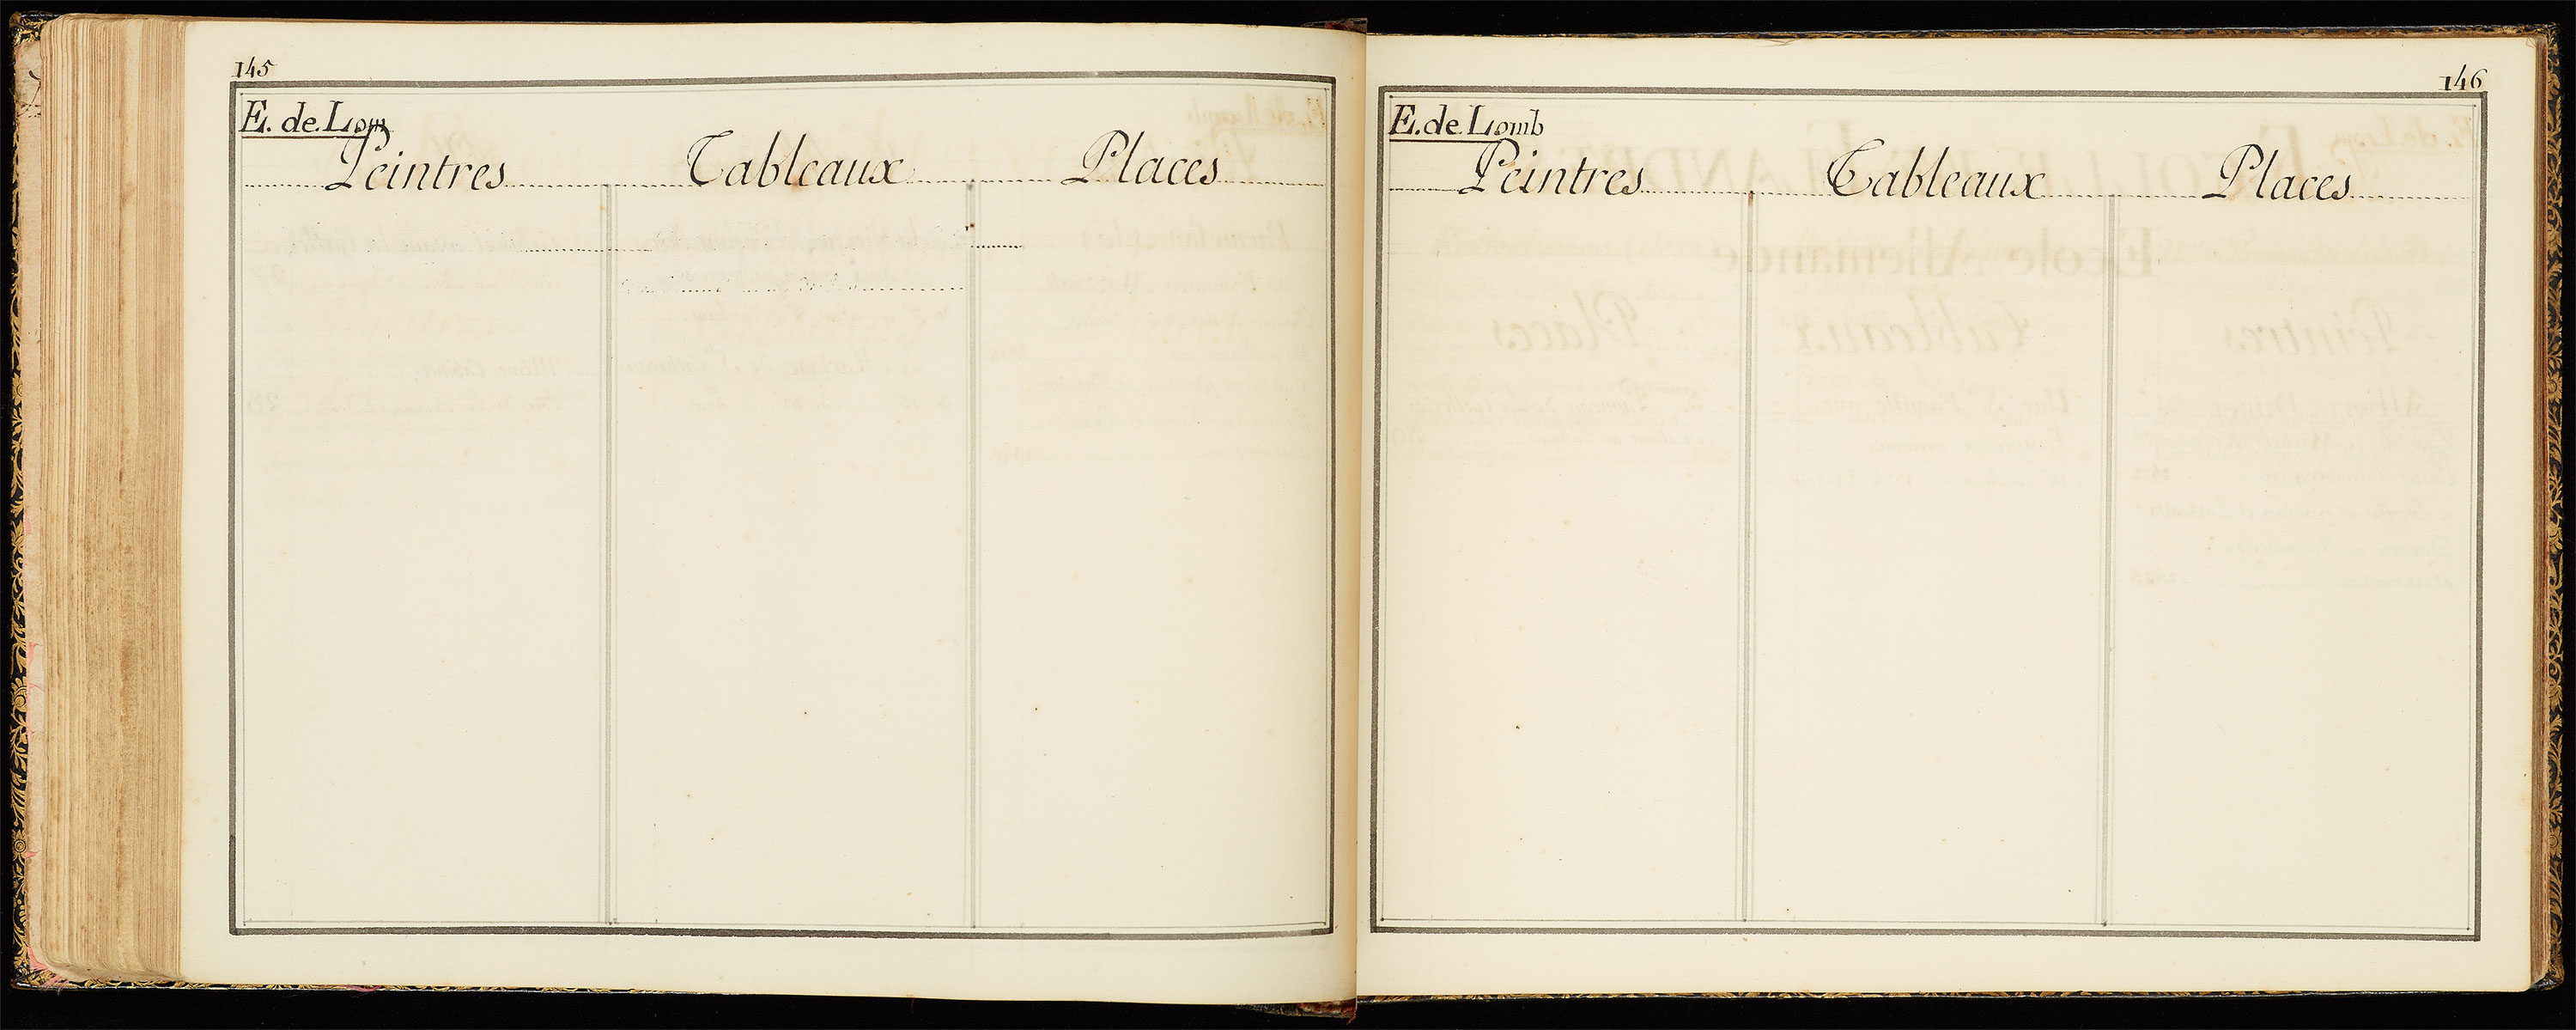 145
E. de Lom
Peintres Tableaux Places
146
E. de Lomb
Peintres Tableaux Places